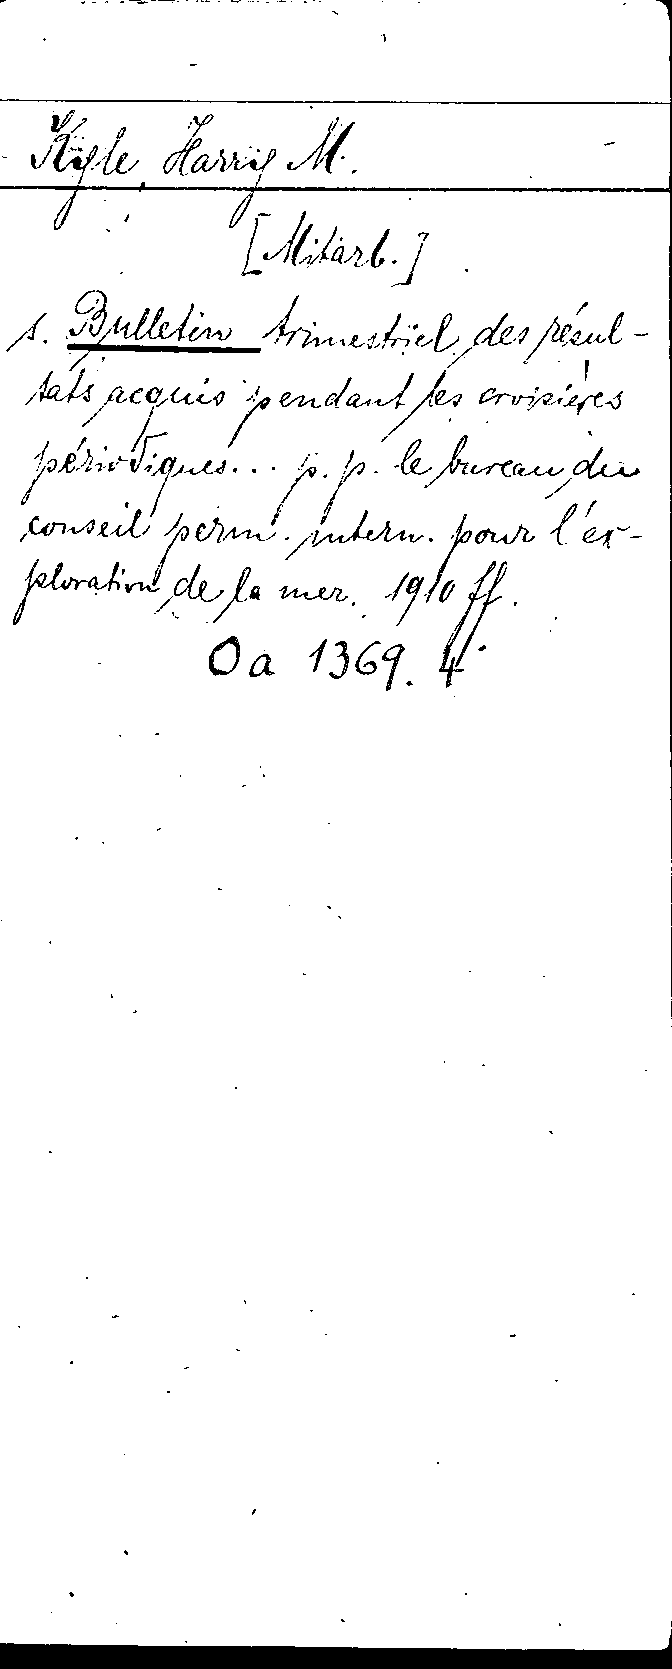 Kyle, Harry M.
[Mitarb.]
s. Bulletin trimestriel des résul-
tats acquis pendant les croisières
périodiques... p. p. le bureau du
conseil perm. intern. pour l'ex-
ploration de la mer. 1910 ff.
Oa 1369. 4°